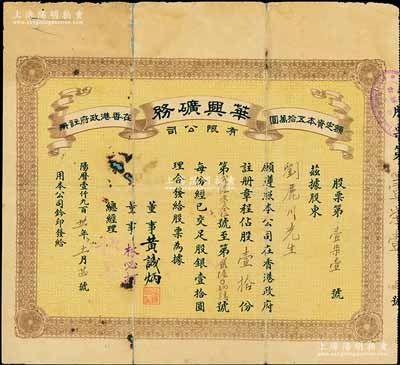 上海陽明拍賣
www.ymauction.com
華興礦務
有限公司
額定資本五拾萬圓
在香港政府註冊
股票第壹柒壹號
茲據股東
劉虎川先生
願遵照本公司在香港政府
註冊章程佔股壹拾份
第 號至第 號
每份經已交足股銀壹拾圓
理合發給股票為據
董事黃誠炳
董事
總經理
陽曆壹仟九百卅年 月 號
用本公司鈐印發給